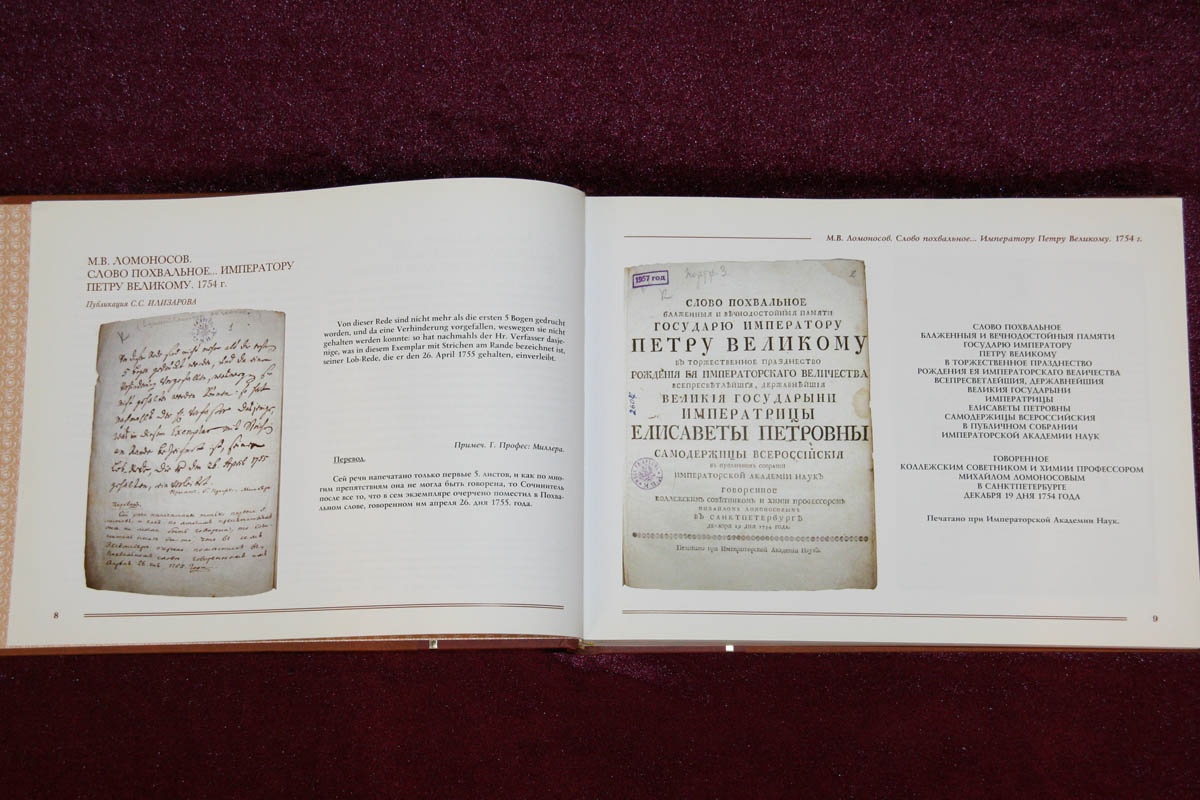 М.В. ЛОМОНОСОВ.
СЛОВО ПОХВАЛЬНОЕ... ИМПЕРАТОРУ
ПЕТРУ ВЕЛИКОМУ. 1754 г.
Публикация С.С. ИЛИЗАРОВА
1
Von dieser Rede sind nicht mehr als die ersten 5 Bogen gedruckt
worden, und da eine Verhinderung vorgefallen, weswegen sie nicht
gehalten werden konnte: so hat nachmahls der Hr. Verfasser dasje-
nige, was in diesem Exemplar mit Strichen am Rande bezeichnet ist,
seiner Lob-Rede, die er den 26. April 1755 gehalten, einverleibt.
Примеч. Г. Профес: Миллера.
Перевод.
Сей речи напечатано только первые 5. листов, и как по мно-
гим препятствиям она не могла быть говорена, то Сочинитель
после все то, что в сем экземпляре очерчено поместил в Похва-
льном слове, говоренном им апреля 26. дня 1755. года.
8
М.В. Ломоносов. Слово похвальное... Императору Петру Великому. 1754 г.
1957 год
2
СЛОВО ПОХВАЛЬНОЕ
БЛАЖЕННЫЯ И ВѢЧНОДОСТОЙНЫЯ ПАМЯТИ
ГОСУДАРЮ ИМПЕРАТОРУ
ПЕТРУ ВЕЛИКОМУ
ВЪ ТОРЖЕСТВЕННОЕ ПРАЗДНЕСТВО
РОЖДЕНІЯ ЕЯ ИМПЕРАТОРСКАГО ВЕЛИЧЕСТВА
ВСЕПРЕСВѢТЛѢЙШІЯ, ДЕРЖАВНѢЙШІЯ
ВЕЛИКІЯ ГОСУДАРЫНИ
ИМПЕРАТРИЦЫ
ЕЛИСАВЕТЫ ПЕТРОВНЫ
САМОДЕРЖИЦЫ ВСЕРОССІЙСКІЯ
ВЪ ПУБЛИЧНОМ СОБРАНІИ
ИМПЕРАТОРСКОЙ АКАДЕМІИ НАУКЪ
ГОВОРЕННОЕ
КОЛЛЕЖСКИМЪ СОВѢТНИКОМЪ И ХИМІИ ПРОФЕССОРОМЪ
МИХАЙЛОМЪ ЛОМОНОСОВЫМЪ
ВЪ САНКТПЕТЕРБУРГѢ
ДЕКАБРЯ 19 ДНЯ 1754 ГОДА.
Печатано при Императорской Академіи Наукъ.
СЛОВО ПОХВАЛЬНОЕ
БЛАЖЕННЫЯ И ВЕЧНОДОСТОЙНЫЯ ПАМЯТИ
ГОСУДАРЮ ИМПЕРАТОРУ
ПЕТРУ ВЕЛИКОМУ
В ТОРЖЕСТВЕННОЕ ПРАЗДНЕСТВО
РОЖДЕНИЯ ЕЯ ИМПЕРАТОРСКАГО ВЕЛИЧЕСТВА
ВСЕПРЕСВЕТЛЕЙШИЯ, ДЕРЖАВНЕЙШИЯ
ВЕЛИКИЯ ГОСУДАРЫНИ
ИМПЕРАТРИЦЫ
ЕЛИСАВЕТЫ ПЕТРОВНЫ
САМОДЕРЖИЦЫ ВСЕРОССИЙСКИЯ
В ПУБЛИЧНОМ СОБРАНИИ
ИМПЕРАТОРСКОЙ АКАДЕМИИ НАУК
ГОВОРЕННОЕ
КОЛЛЕЖСКИМ СОВЕТНИКОМ И ХИМИИ ПРОФЕССОРОМ
МИХАЙЛОМ ЛОМОНОСОВЫМ
В САНКТПЕТЕРБУРГЕ
ДЕКАБРЯ 19 ДНЯ 1754 ГОДА
Печатано при Императорской Академии Наук.
9